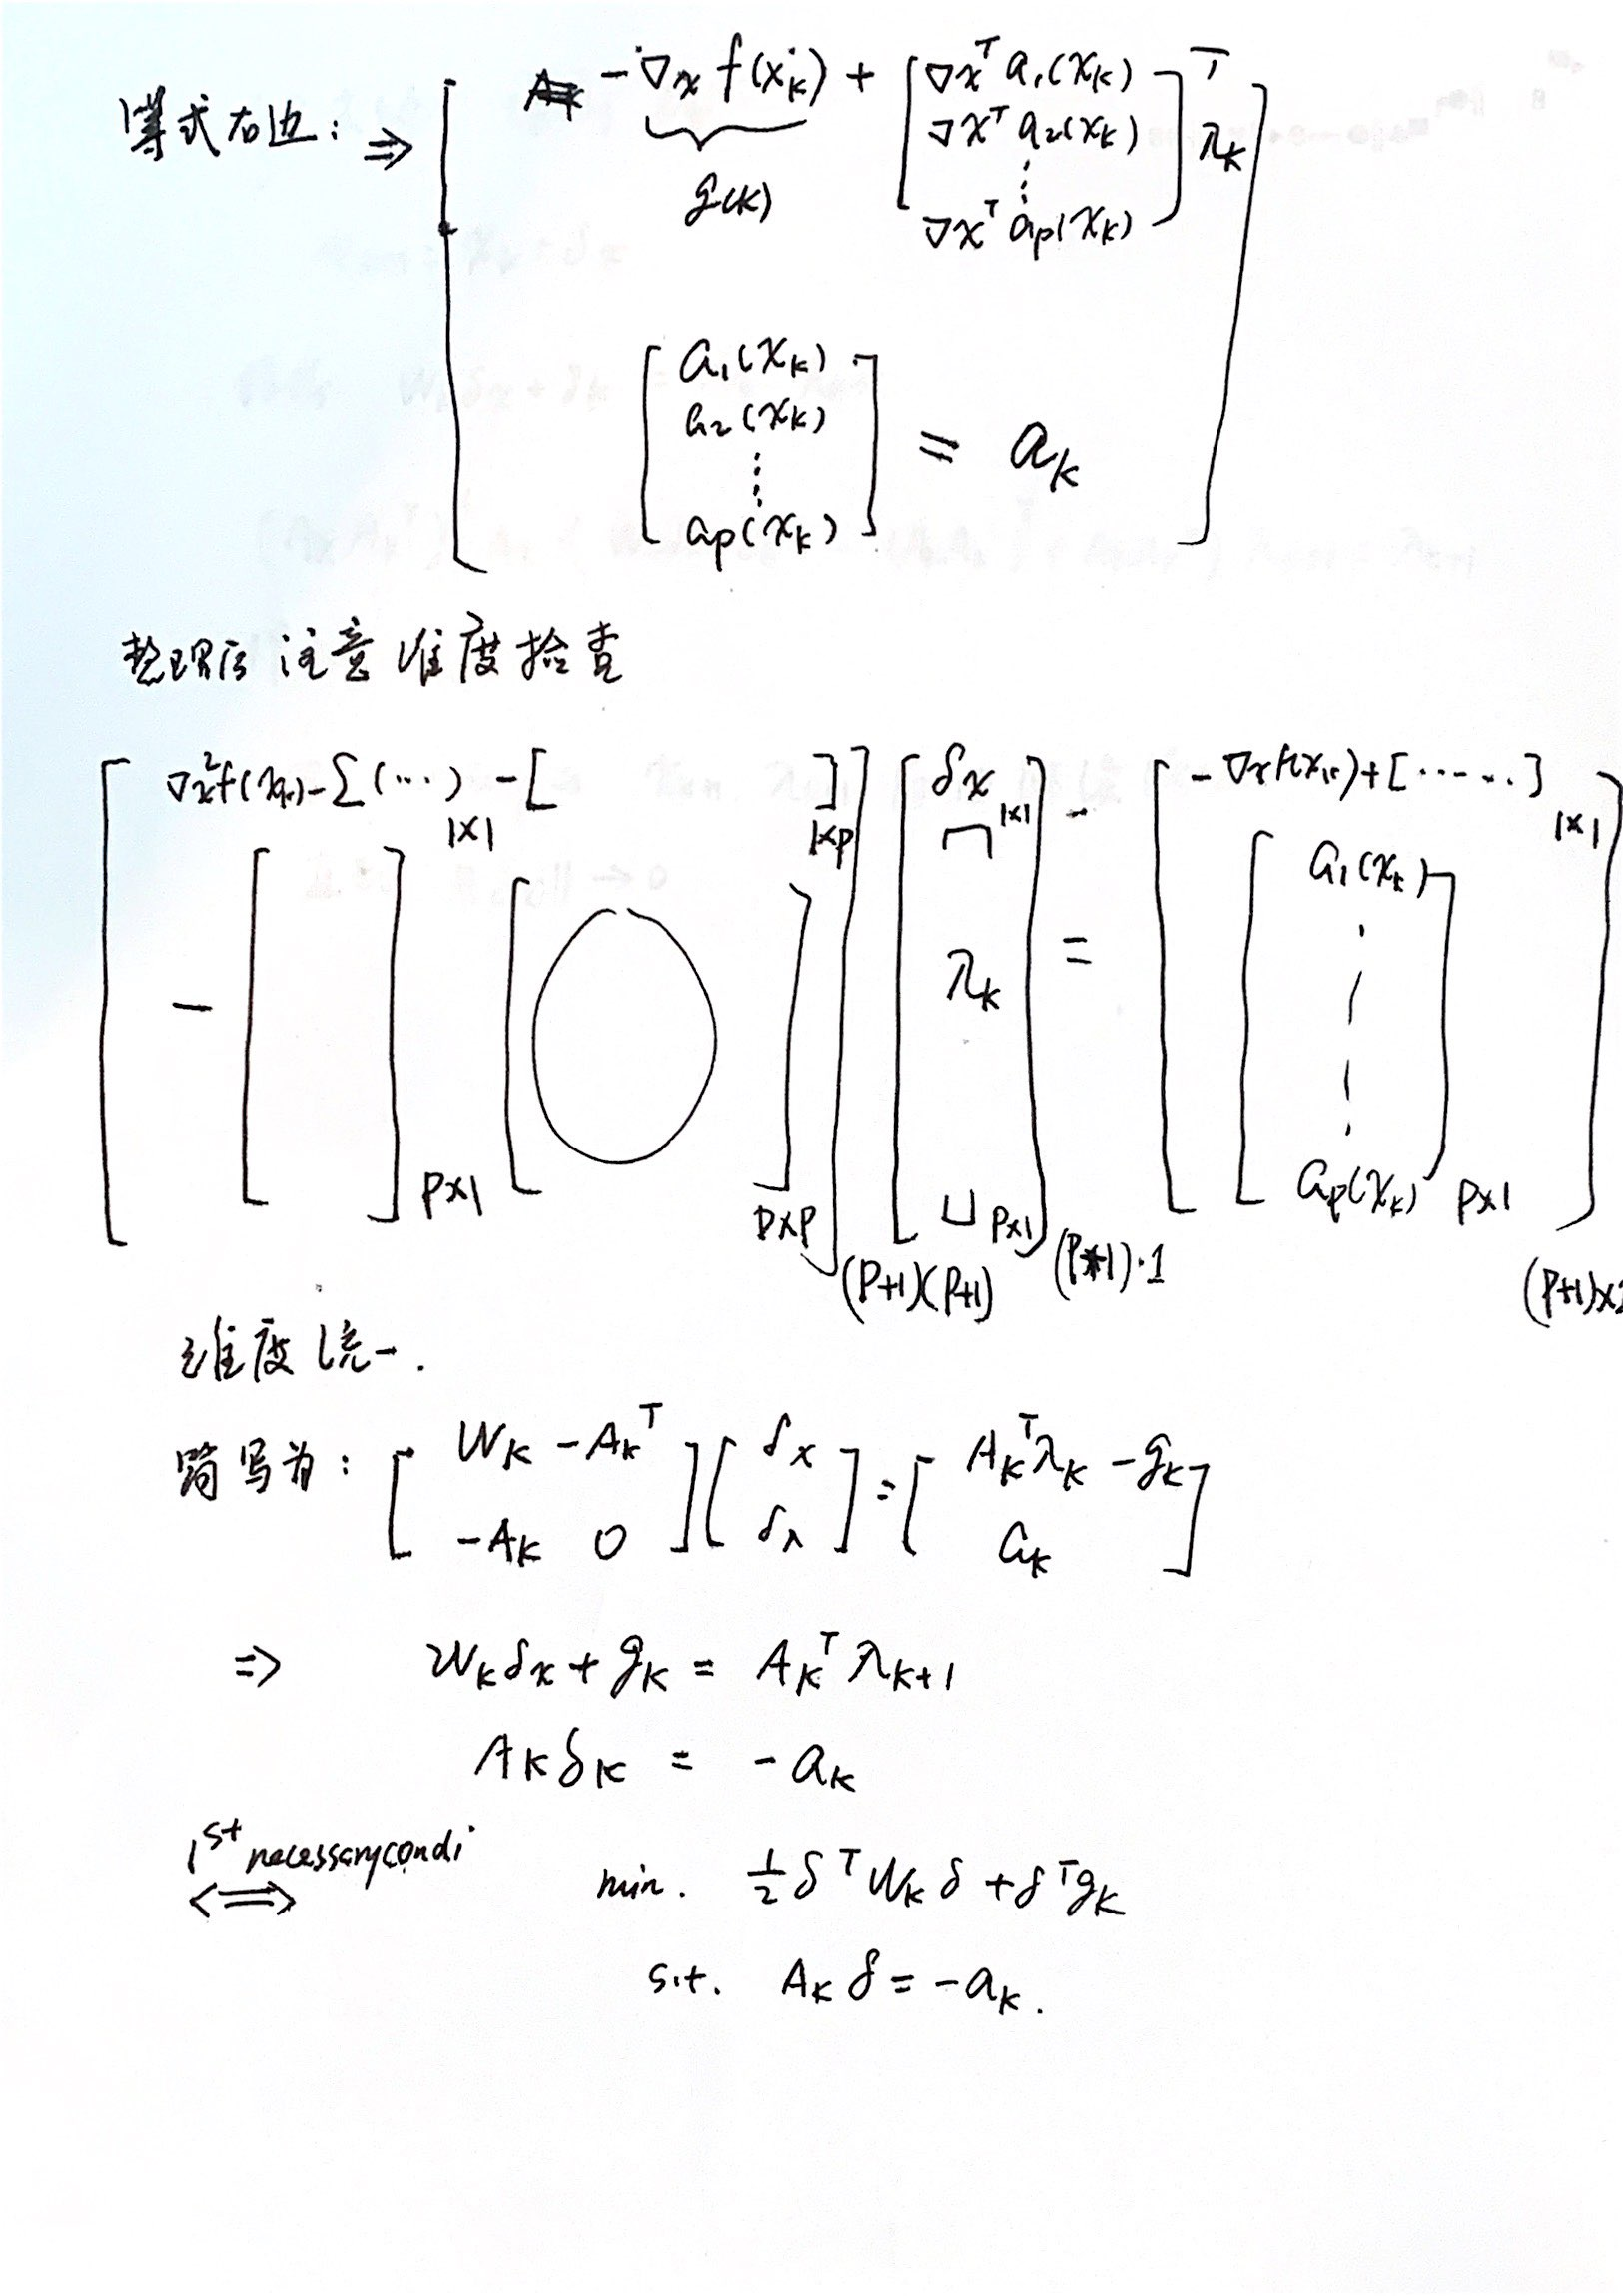 等式右边: ⇒ [ -∇x f(xk) + [ ∇x^T a1(xk)
∇x^T a2(xk)
⋮
∇x^T ap(xk) ]^T λk
g(k)
[ a1(xk)
a2(xk)
⋮
ap(xk) ] = ak ]
整理后 注意维度检查
[ ∇x²f(xk)-Σ(…) 1×1 -[ ] 1×p ] [ δx 1×1 ] = [ -∇xf(xk)+[……] 1×1 ]
-[ ] p×1 [ 0 ] p×p [ λk ] p×1 [ a1(xk)
⋮
ap(xk) ] p×1
(p+1)(p+1) (p+1)·1
维度统一.
简写为: [ Wk -Ak^T
-Ak 0 ] [ δx
δλ ] = [ Ak^Tλk -gk
ak ]
⇒ Wkδx + gk = Ak^T λk+1
Akδk = -ak
1st necessary condi
⟺ min. 1/2 δ^T Wk δ + δ^T gk
s.t. Ak δ = -ak.